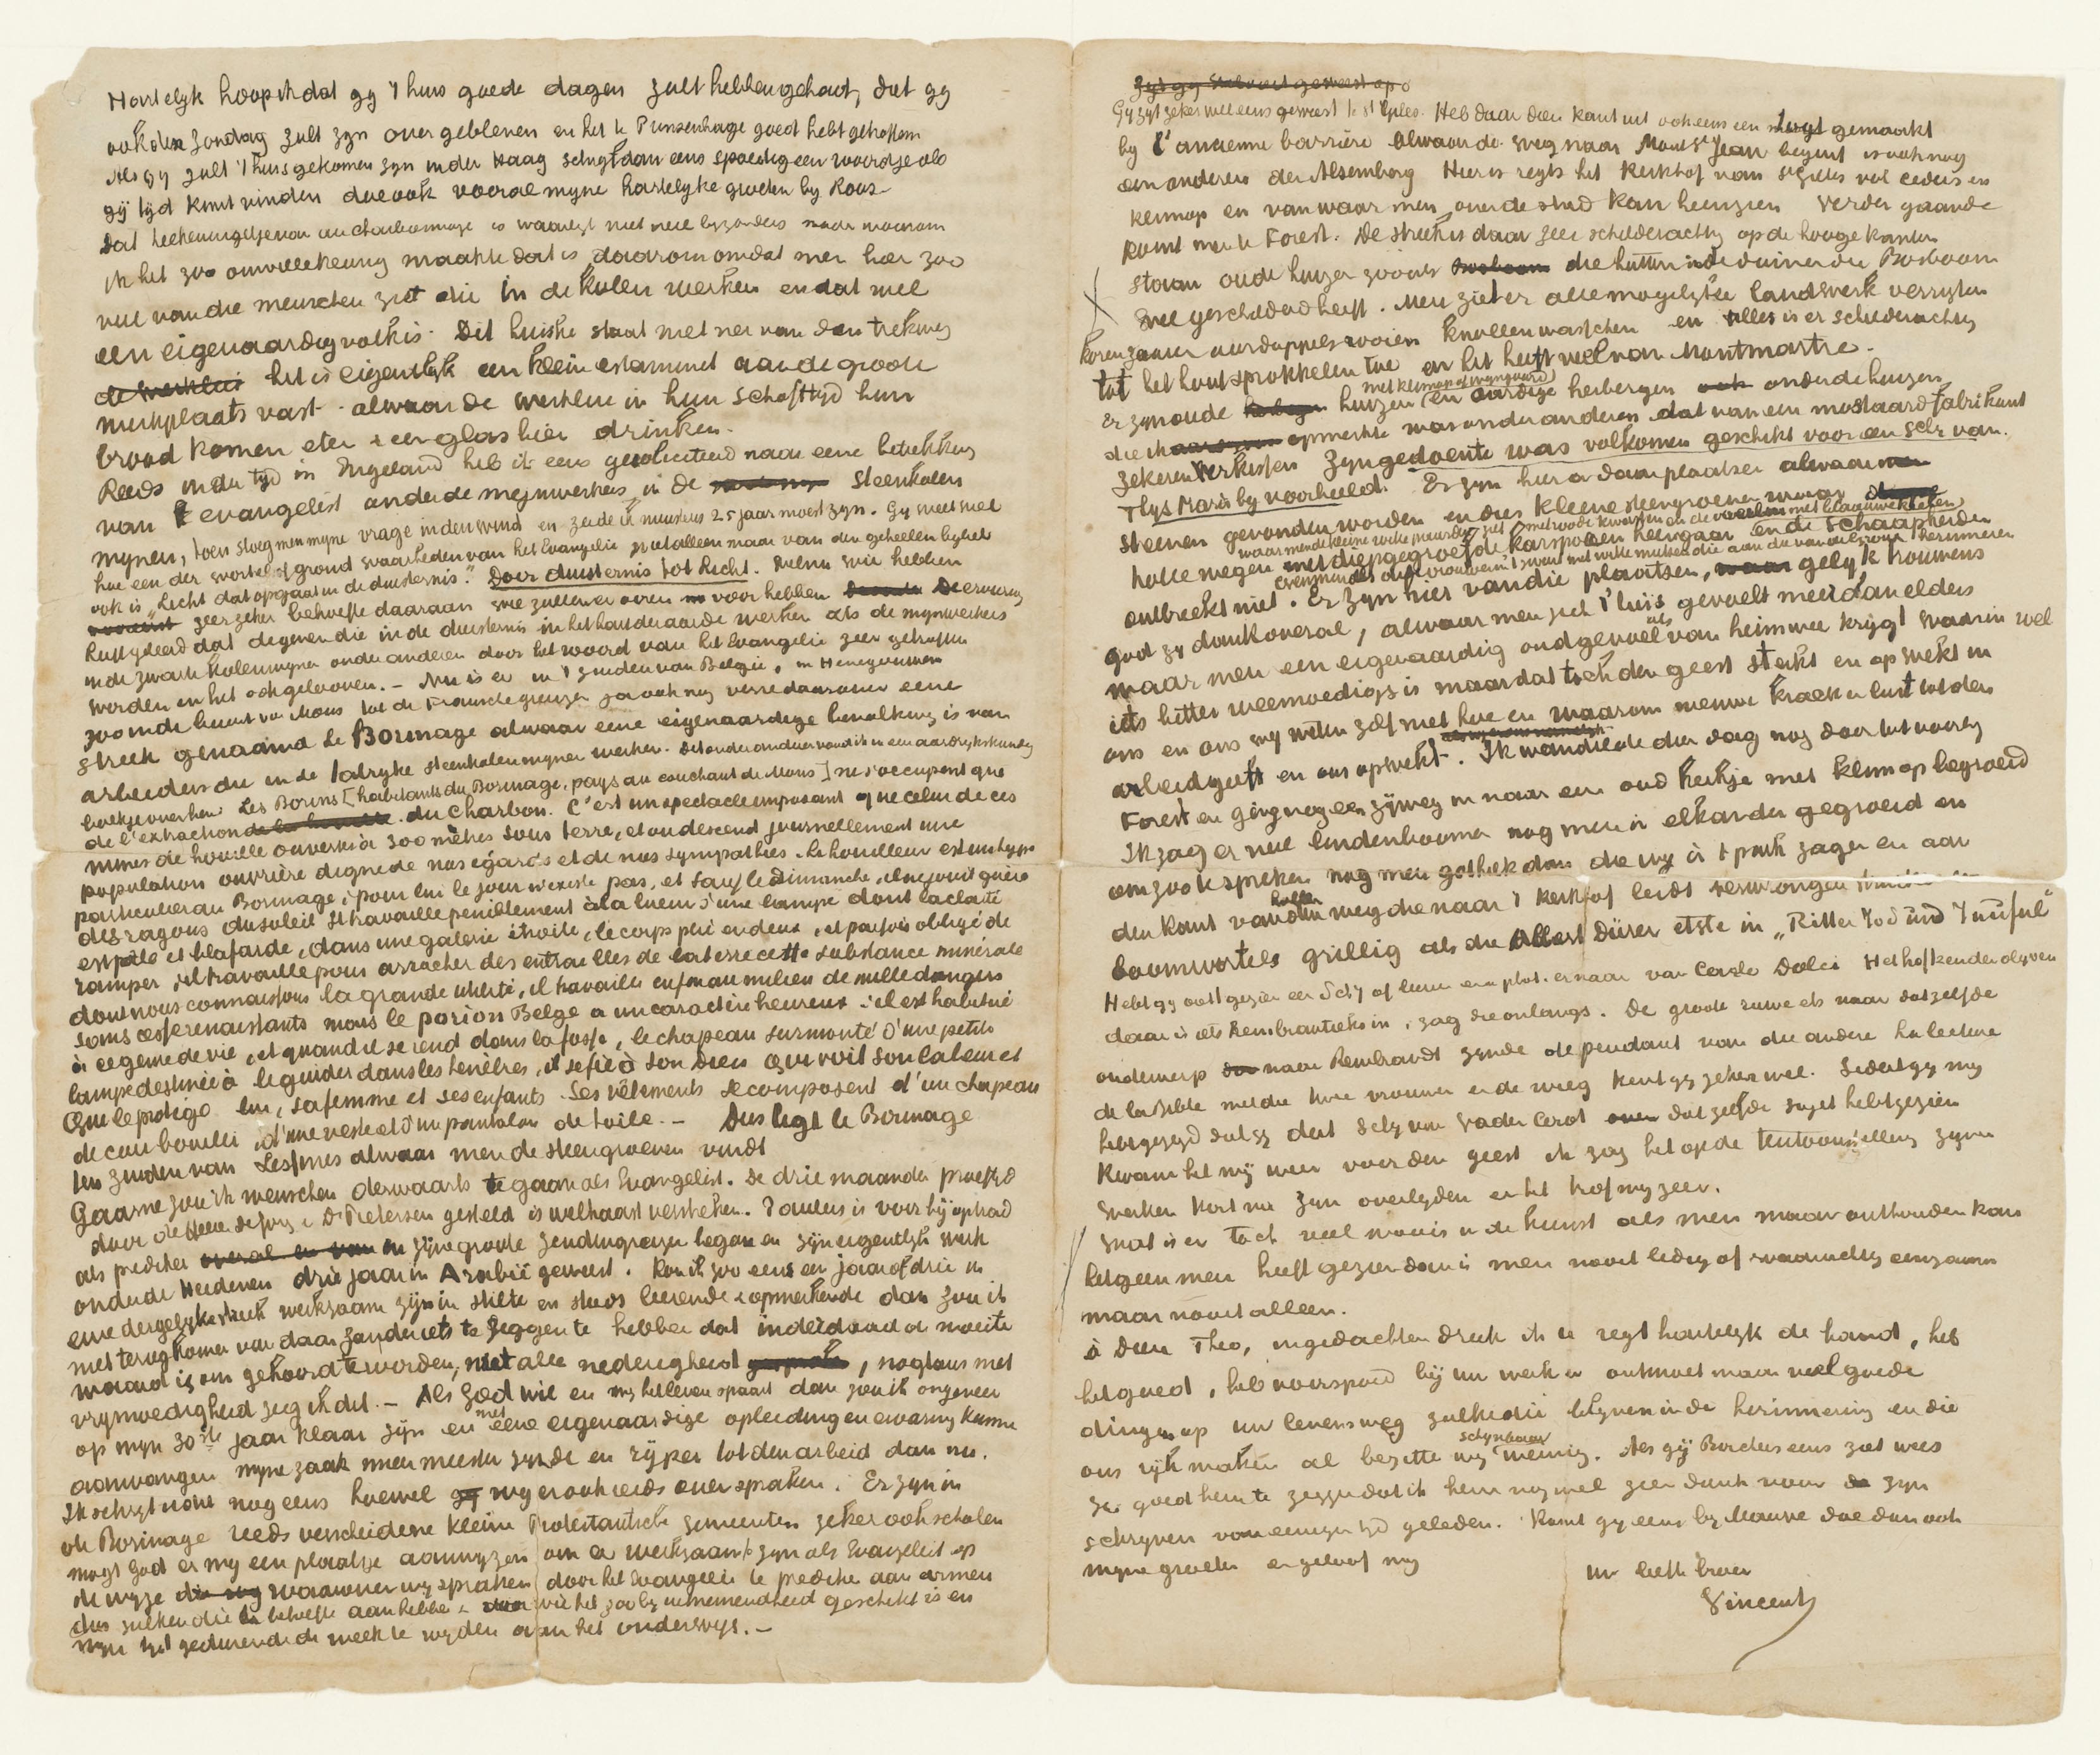 Hartelyk hoop ik dat gy 't huis goede dagen zult hebben gehad, dat gy
ook den Zondag zult zyn overgebleven en het te Prinsenhage goed hebt getroffen
Als gy zult 't huis gekomen zyn in den Haag schryf dan eens spoedig een woordje als
gij tijd kunt vinden doe ook vooral myne hartelyke groeten by Roos—
Dat teekeningetje van au charbonnage is waarlyk niet veel byzonders maar waarom
ik het zoo onwillekeurig maakte dat is daarom omdat men hier zoo
veel van die menschen ziet die in de kolen werken en dat wel
een eigenaardig volk is. Dit huiske staat niet ver van den trekweg
de werklui het is eigentlyk een klein estaminet aan de groote
werkplaats vast. alwaar de werklui in hun schofttyd hun
brood komen eten & een glas bier drinken.
Reeds in der tyd in Engeland heb ik eens gesolliciteerd naar eene betrekking
van evangelist onder de mynwerkers in de steenkolen
mynen, toen sloeg men myne vrage in den wind en zeide ik minstens 25 jaar moest zyn. Gy weet wel
hoe een der wortel of grond waarheden van het Evangelie niet alleen maar van den geheelen bybel
ook is „Licht dat opgaat in de duisternis." Door duisternis tot licht. Welnu wie hebben
zeer zeker behoefte daaraan wie zullen er ooren voor hebben De ervaring
heeft geleerd dat degenen die in de duisternis in het hart der aarde werken als de mynwerkers
in de zwarte kolenmynen onder anderen door het woord van het Evangelie zeer getroffen
worden en het ook gelooven. — Nu is er in 't zuiden van Belgie, in Henegouwen
zoo in de buurt van Mons tot de Fransche grenzen ja ook nog verre daarover eene
streek genaamd le Borinage alwaar eene eigenaardige bevolking is van
arbeiders die in de talryke steenkolenmynen werken. Dit onder anderen vond ik in een aardrykskundig
boekje over hen: Les Borins [habitants du Borinage, pays au couchant de Mons] ne s'occupent que
de l'extraction de la houille du charbon. C'est un spectacle imposant que celui de ces
mines de houille ouvertes à 300 mètres sous terre, et ou descend journellement une
population ouvrière digne de nos égards et de nos sympathies. Le houilleur est un type
particulier au Borinage, pour lui le jour n'existe pas, et sauf le Dimanche, il ne jouit guère
des rayons du soleil. Il travaille peniblement à la lueur d'une lampe dont la clarté
est pâle et blafarde, dans une galerie étroite, le corps plié en deux, et parfois obligé de
ramper, il travaille pour arracher des entrailles de la terre cette substance minérale
dont nous connaissons la grande utilité, il travaille enfin au milieu de mille dangers
sans cesse renaissants mais le porion Belge a un caractère heureux, il est habitué
à ce genre de vie, et quand il se rend dans la fosse, le chapeau surmonté d'une petite
lampe destinée à le guider dans les tenèbres, il se fie à son Dieu Qui voit son labeur et
Qui le protège lui, sa femme et ses enfants. Ses vêtements se composent d'un chapeau
de cuir bouilli, d'une veste et d'un pantalon de toile. — Dus ligt le Borinage
ten zuiden van Lessines alwaar men de steengroeven vindt
Gaarne zou ik wenschen derwaarts te gaan als Evangelist. De drie maanden proeftyd
door de Heeren de Jong & Ds Pietersen gesteld is welhaast verstreken. Paulus is voor hij optrad
als prediker en zijn groote zendingreizen begon en zijn eigentlyk werk
onder de Heidenen drie jaar in Arabië geweest. Kon ik zoo eens een jaar of drie in
eene dergelyke streek werkzaam zijn in stilte en steeds leerende & opmerkende dan zou ik
niet terugkomen van daar zonder iets te zeggen te hebben dat inderdaad de moeite
waard is om gehoord te worden, met alle nederigheid , nogtans met
vrymoedigheid zeg ik dit. — Als God wil en my het leven spaart dan zou ik ongeveer
op myn 30ste jaar klaar zijn en met eene eigenaardige opleiding en ervaring kunnen
aanvangen myne zaak meer meester zynde en ryper tot den arbeid dan nu.
Ik schryf u dit nog eens hoewel wy er ook reeds over spraken. Er zyn in
de Borinage reeds verscheidene kleine Protestantsche gemeenten zeker ook scholen
mogt God er my een plaatsje aanwyzen om er werkzaam te zyn als Evangelist op
de wyze die wy waarover wy spraken door het Evangelie te prediken aan armen
dus zulken die er behoefte aan hebben & voor wie het zoo by uitnemendheid geschikt is en
myn tyd gedurende de week te wyden aan het onderwys. —
Zyt gy
Gy zyt zeker wel eens geweest te St Gilles. Heb daar dien kant uit ook eens een togt gemaakt
by l'ancienne barrière Alwaar de weg naar Mont St Jean begint is ook nog
een anderen den Alsemberg Hier is regts het kerkhof van St Gilles vol ceders en
klimop en van waar men over de stad kan heenzien Verder gaande
komt men te Forest. De streek is daar zeer schilderachtig op de hooge kanten
staan oude huizen zooals die hutten in de duinen die Bosboom
wel geschilderd heeft. Men ziet er alle mogelyke landswerk verrigten
koren zaaien aardappels rooien knollen wasschen en alles is er schilderachtig
tot het hout sprokkelen toe en het heeft veel van Montmartre.
Er zyn oude huizen met klimop of wyngaard en aardige herbergen onder de huizen
die ik opmerkte was onder anderen dat van een mostaardfabrikant
zekeren Verkissen zyn gedoente was volkomen geschikt voor een schij van
Thys Maris by voorbeeld. Er zyn hier & daar plaatsen alwaar
steenen gevonden worden en dus kleine steengroeven waar
holle wegen met diepgegroefde karsporen heengaan
waar men de kleine witte paardjes ziet met roode kwasten en de voerlui met blauwe kielen en de schaapherder
ontbreekt niet. evenmin als oude vrouwen in 't zwart met witte mutsen die aan die van de Groux herinneren
Er zyn hier van die plaatsen, gelyk trouwens
God zy dank overal, alwaar men zich t'huis gevoelt meer dan elders
waar men een eigenaardig oud gevoel als van heimwee krygt waarin wel
iets bitter weemoedigs is maar dat toch den geest sterkt en opwekt in
ons en ons wy weten zelf niet hoe en waarom nieuwe kracht en lust tot den
arbeid geeft en ons opwekt. Ik wandelde dien dag nog door tot voorby
Forest en ging nog een zijweg in naar een oud kerkje met klimop begroeid
Ik zag er veel lindenboomen nog meer in elkander gegroeid en
om zoo te spreken nog meer gothiek dan die wy in 't park zagen en aan
den kant van den hollen weg die naar 't kerkhof leidt verwrongen
boomwortels grillig als die Albert Dürer etste in „Ritter Tod und Teufel"
Hebt gy ooit gezien een schij of liever een phot. er naar van Carlo Dolci Het hofken der olyven
daar is iets Rembrantieks in, zag die onlangs. De groote ruwe ets naar datzelfde
onderwerp naar Rembrandt zynde de pendant van die andere la lecture
de la Bible met die twee vrouwen en de wieg kent gy zeker wel. Sedert gy my
hebt gezegd dat gy dat schij van Vader Corot datzelfde sujet hebt gezien
kwam het mij weer voor den geest ik zag het op de tentoonstelling zyner
werken kort na zyn overlyden en het trof my zeer.
Wat is er toch veel moois in de kunst als men maar onthouden kan
hetgeen men heeft gezien dan is men nooit ledig of waarachtig eenzaam
maar nooit alleen.
à Dieu Theo, in gedachten druk ik u regt hartelyk de hand, heb
het goed, heb voorspoed bij uw werk en ontmoet maar veel goede
dingen op uw levensweg zulke die blyven in de herinnering en die
ons rijk maken al bezitten wy schynbaar weinig. Als gy Borchers eens ziet wees
zoo goed hem te zeggen dat ik hem nog wel zeer dank voor zyn
schryven van eenigen tyd geleden. Komt gy eens by Mauve doe dan ook
myne groeten en geloof my
uw liefh. broer
Vincent